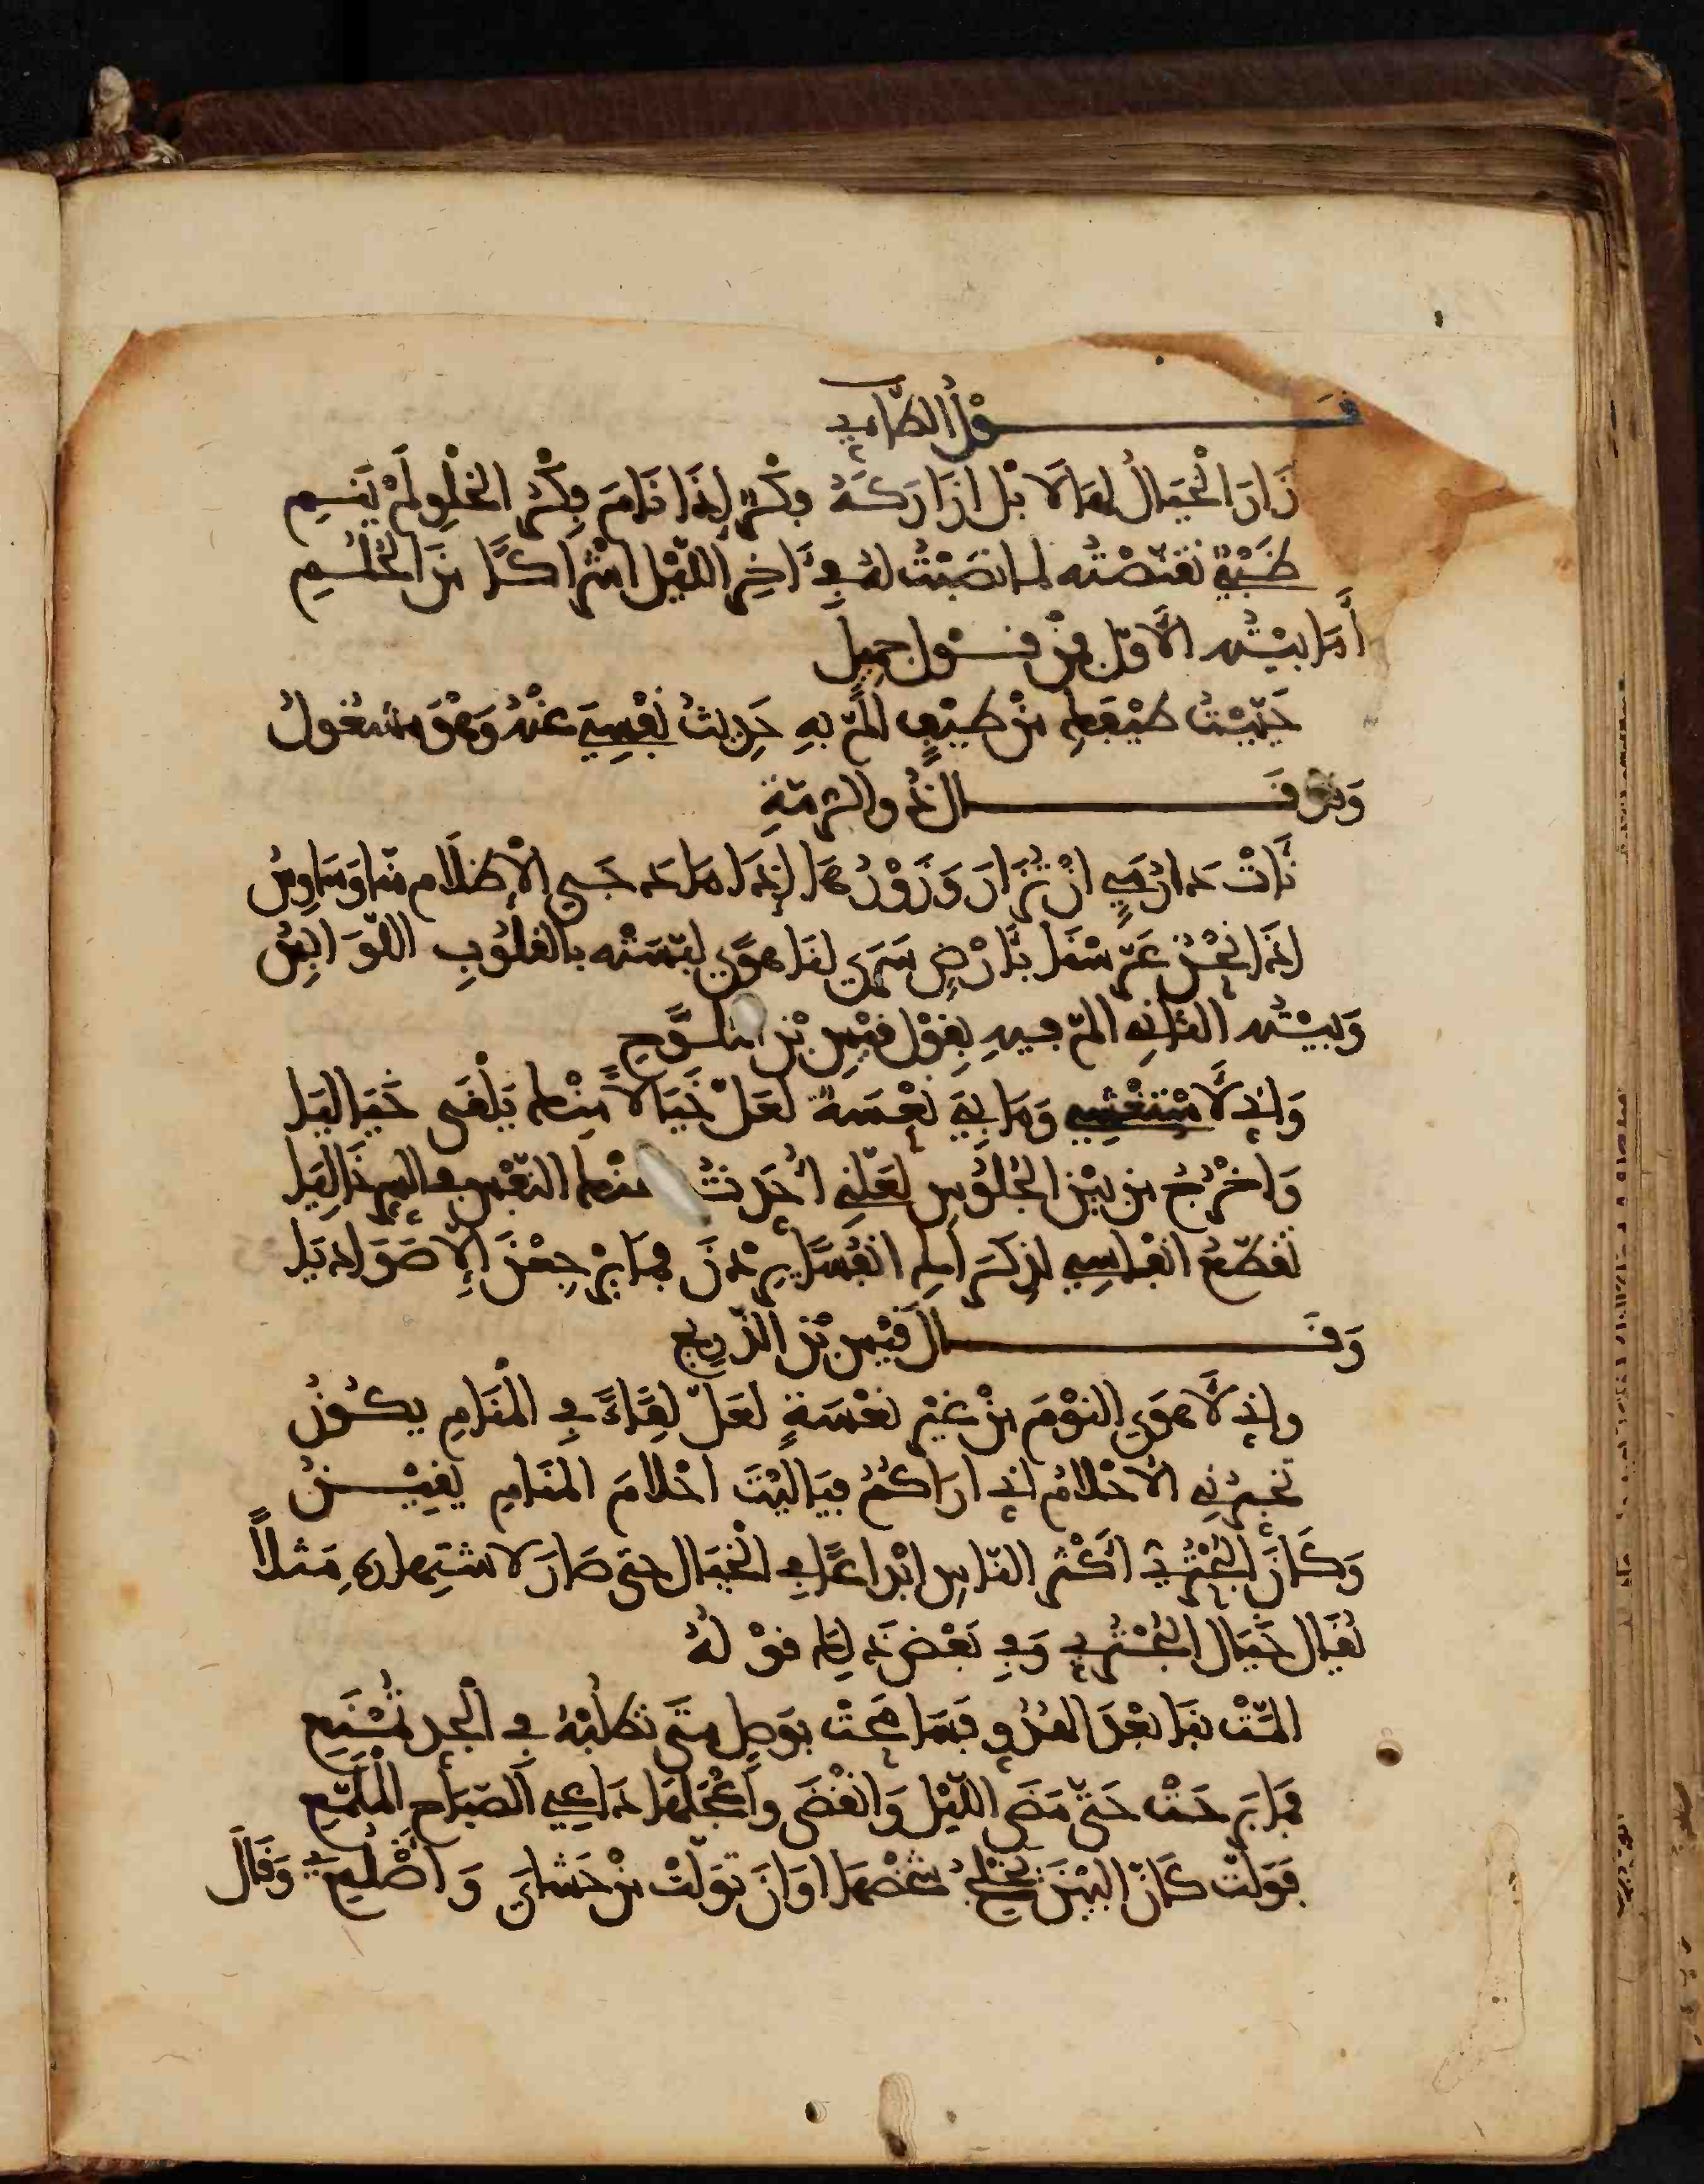 قَــوْلُ الطَّاءِي
زَارَ الْخَيَالُ لهَا لَا بَل ازَارَكَهُ فِكْرٌ إِذَا نَامَ فِكْرُ الْخِلْوِ لَمْ يَنَمِ
ظَبْيٌ تَقَنَّصْتُه لمَا نَصَبْتُ لهُ فِي ءَاخِرِ اللَّيْلِ اشْرَاكًا مِنَ الْحُلُمِ
أَمَا بيْتُه الأوّل فمِنْ قَــوْل جَمِيل
حَيَّيْتُ طَيْفَكِ مِنْ طَيْفٍ المَّ بهِ حَدِيثُ نَفْسِيَ عَنْهُ وَهْوَ مشغُولُ
وَمن قَــال ذُو الرُّمّةِ
نَأَتْ دَارُ مَيٍّ انْ تُزَارَ وَزَوْرُهَا إِذَا مَا دَجَى الإظْلَام منّا وَسَاوِسُ
اذَا نَحْنُ عَرَّسْنَا بأَرْضٍ سَرَى لنَا هوًى لبّسَتْه بالقلُوبِ اللَّوَابِسُ
وَبيْتُه الثانِي المّ فيهِ بِقَوْل قَيْسِ بْنِ الملَــوَّحِ
وَإِنِّي لأَسْتَغْشِي وَمَا بِيَ نَعْسَةٌ لَعَلَّ خَيَالًا مِنْكِ يَلْقَى خَيَاليَا
وَاخْرُجُ مِن بَيْنِ الجُلُوسِ لعَلّنِي أُحَدِّثُ عنْكِ النّفْسَ في السرِ خَالِيَا
تُقَطّعُ انْفَاسِي لذِكْرَاكِ انْفُسًا يَرِدْنَ فمَا يَرْجِعْنَ إِلا صَوَادِيَا
وَقَــال قَيْس بْن الذّرِيح
وإني لأهوَى النوْمَ مِنْ غَيْر نَعْسَةٍ لعَلّ لِقَاءً في الْمَنَامِ يكُونُ
تخبرُنِي الأحْلامُ اني ارَاكُمُ فيَا ليْتَ احْلامَ المنَامِ يَقِيــنُ
وَكَانَ البُحْتُرِيّ أكْثر النّاسِ ابْدَاعًا في الْخيَال حتى صَارَ لاشتهاره مَثلاً
يُقَال خَيَال البُحْتُرِي وَفِي بَعْض ذلِك قوْلهُ
المّتْ بنَا بَعْدَ الهُدُوِّ فسَامَحَتْ بوَصلٍ متَى تَطلُبْهُ في الْجدِ تَمْنَعِ
فمَا بَرِحَتْ حَتَّى مَضَى اللّيْل وَانْقَضَى وأعْجَلهَا دَاعِي الصّبَاح الْمُلَمّعِ
فوَلّتْ كَأَنَّ البَيْنَ يخْلِجُ شخْصهَا اوَانَ تَوَلّتْ مِنْ حَشَايَ وَأضْلُعِي وَقَالَ